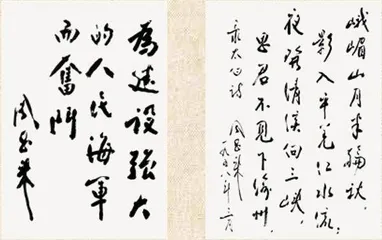 為建設強大
的人民海軍
而奮鬥
周恩来
峨嵋山月半輪秋，
影入平羌江水流；
夜發清溪向三峽，
思君不見下渝州.
录太白诗
周恩来
一九五八年二月